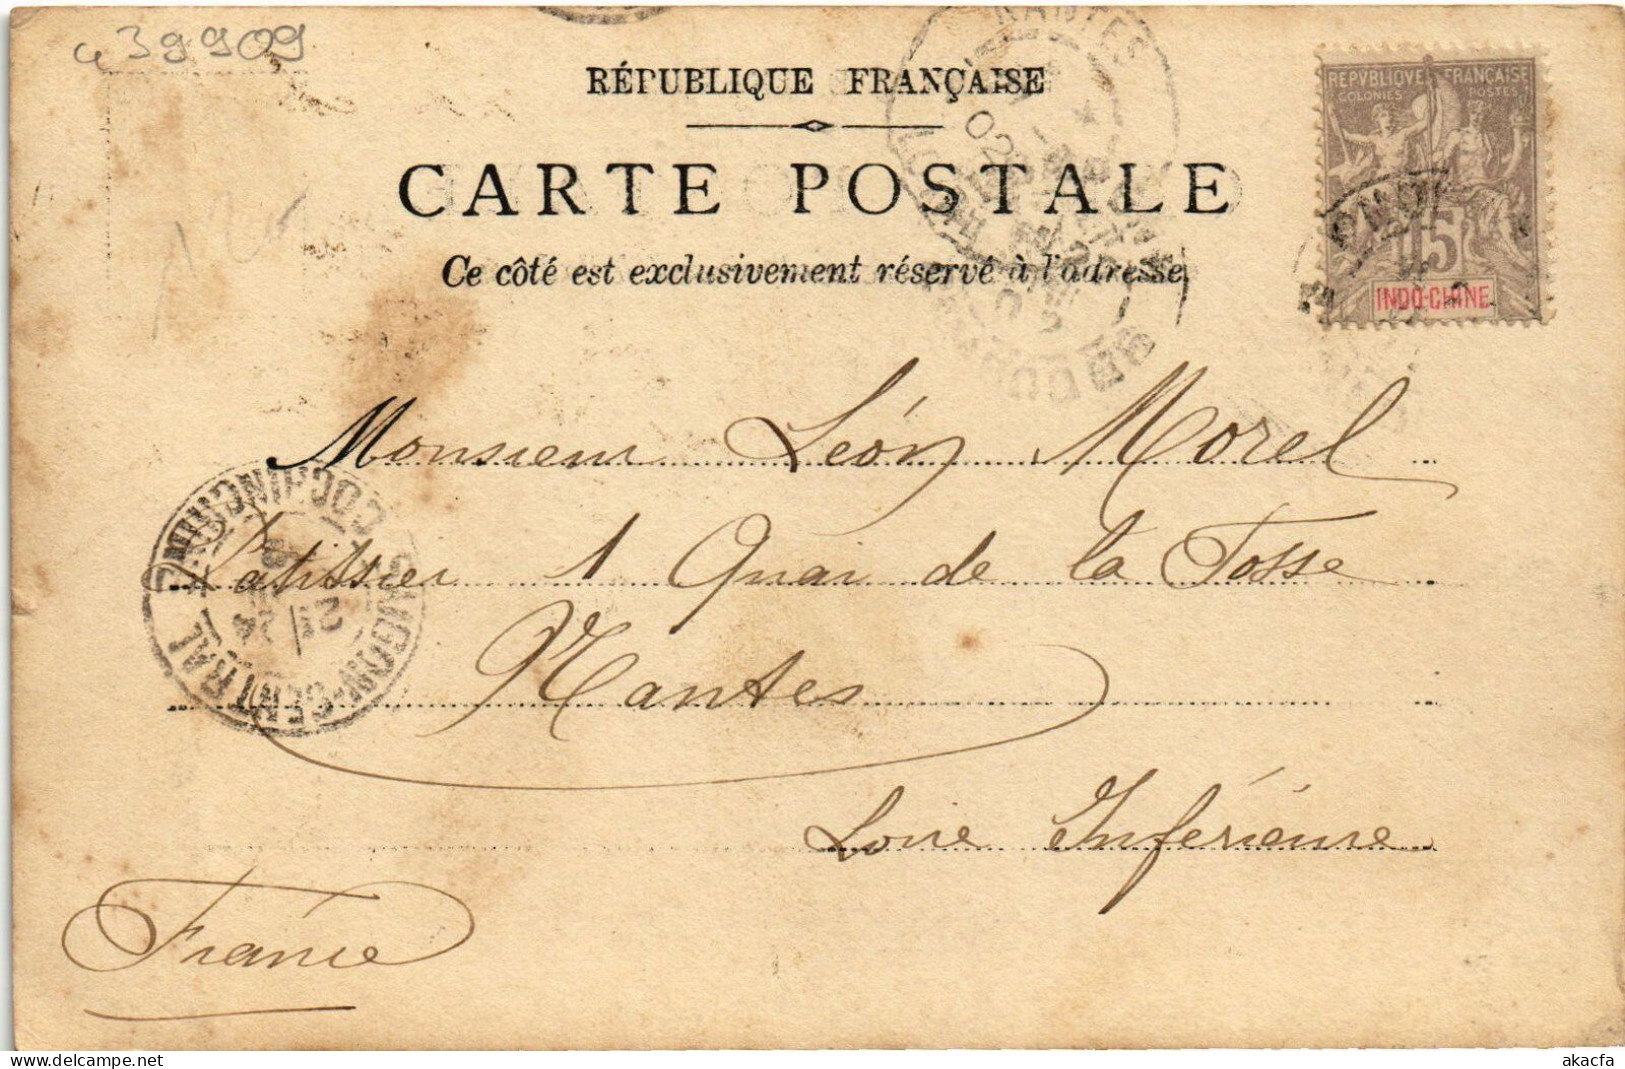 439909
RÉPUBLIQUE FRANÇAISE
CARTE POSTALE
Ce côté est exclusivement réservé à l'adresse
REPVBLIQVE FRANÇAISE
COLONIES POSTES
15
INDO-CHINE
NANTES
02
Monsieur Léon Morel
Patissier 1 Quai de la Fosse
Nantes
Loire Inférieure
France
SAIGON-CENTRAL
COCHINCHINE
akacfa